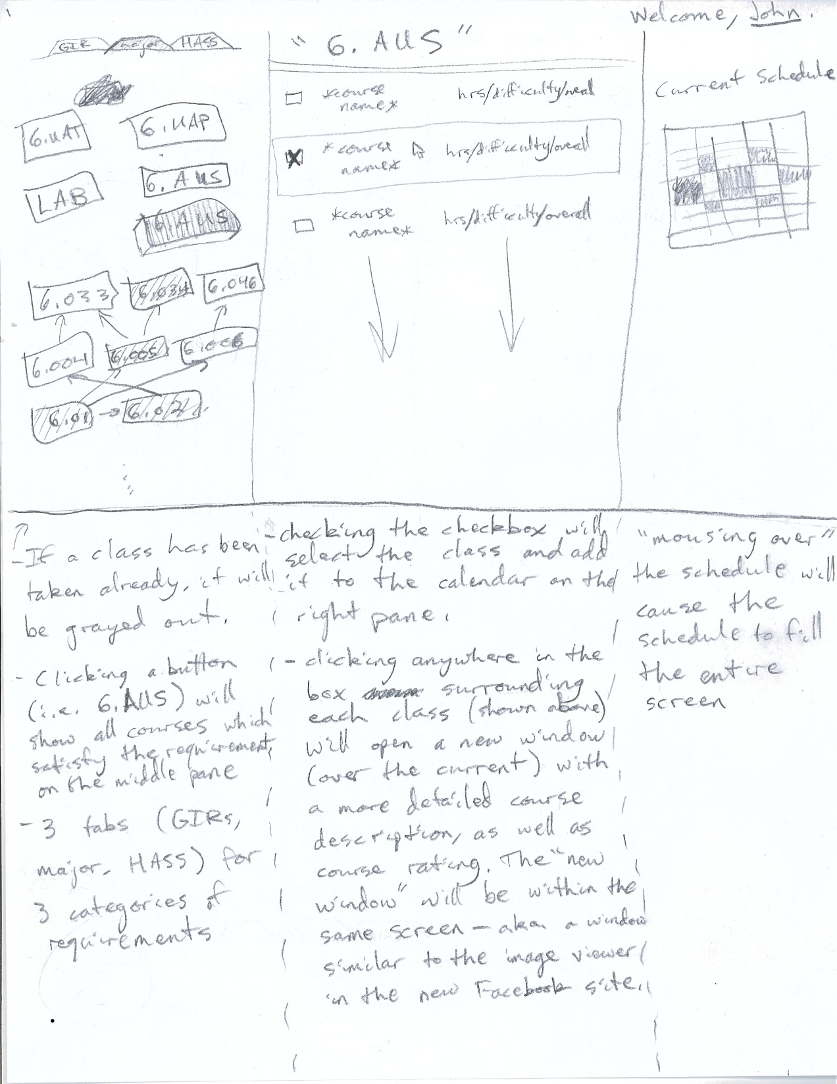 Welcome, John.
GIR major HASS
6.UAT
6.UAP
LAB
6.AUS
6.AUS
6.033
6.034
6.046
6.004
6.005
6.006
6.01
6.02
"6. AUS"
*course name*
hrs/difficulty/overall
*course name*
hrs/difficulty/overall
*course name*
hrs/difficulty/overall
Current Schedule
- If a class has been
taken already, it will
be grayed out.
- Clicking a button
(i.e. 6.AUS) will
show all courses which
satisfy the requirement
on the middle pane
- 3 tabs (GIRs,
major, HASS) for
3 categories of
requirements
- checking the checkbox will
select the class and add
it to the calendar on the
right pane.
- clicking anywhere in the
box surrounding
each class (shown above)
will open a new window
(over the current) with
a more detailed course
description, as well as
course rating. The "new
window" will be within the
same screen - aka a window
similar to the image viewer
in the new Facebook site.
"mousing over"
the schedule will
cause the
schedule to fill
the entire
screen